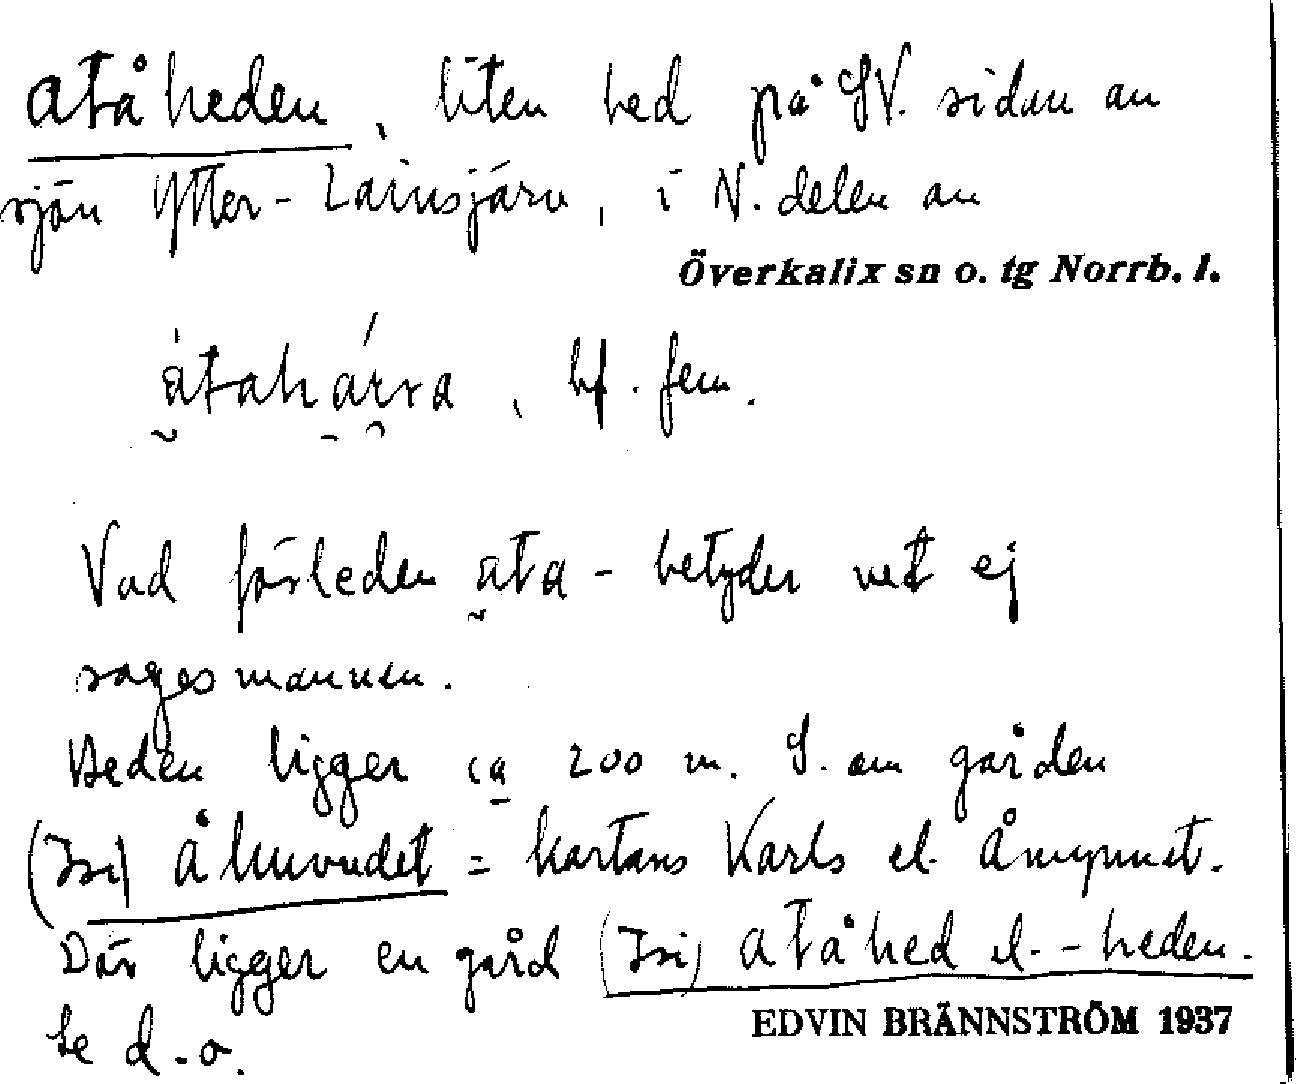 Atåheden, liten hed på SV. sidan av
sjön Ytter-Lainsjärv, i N. delen av
Överkalix sn o. tg Norrb. l.
, bf. fem.
Vad förleden ata- betyder vet ej
sagesmannen.
Heden ligger ca 200 m. S. om gården
(Isi) Åhuvudet = kartans Karls el. Åmynnet.
Där ligger en gård (Isi) Atåhed el. -heden.
se d.o.
EDVIN BRÄNNSTRÖM 1937